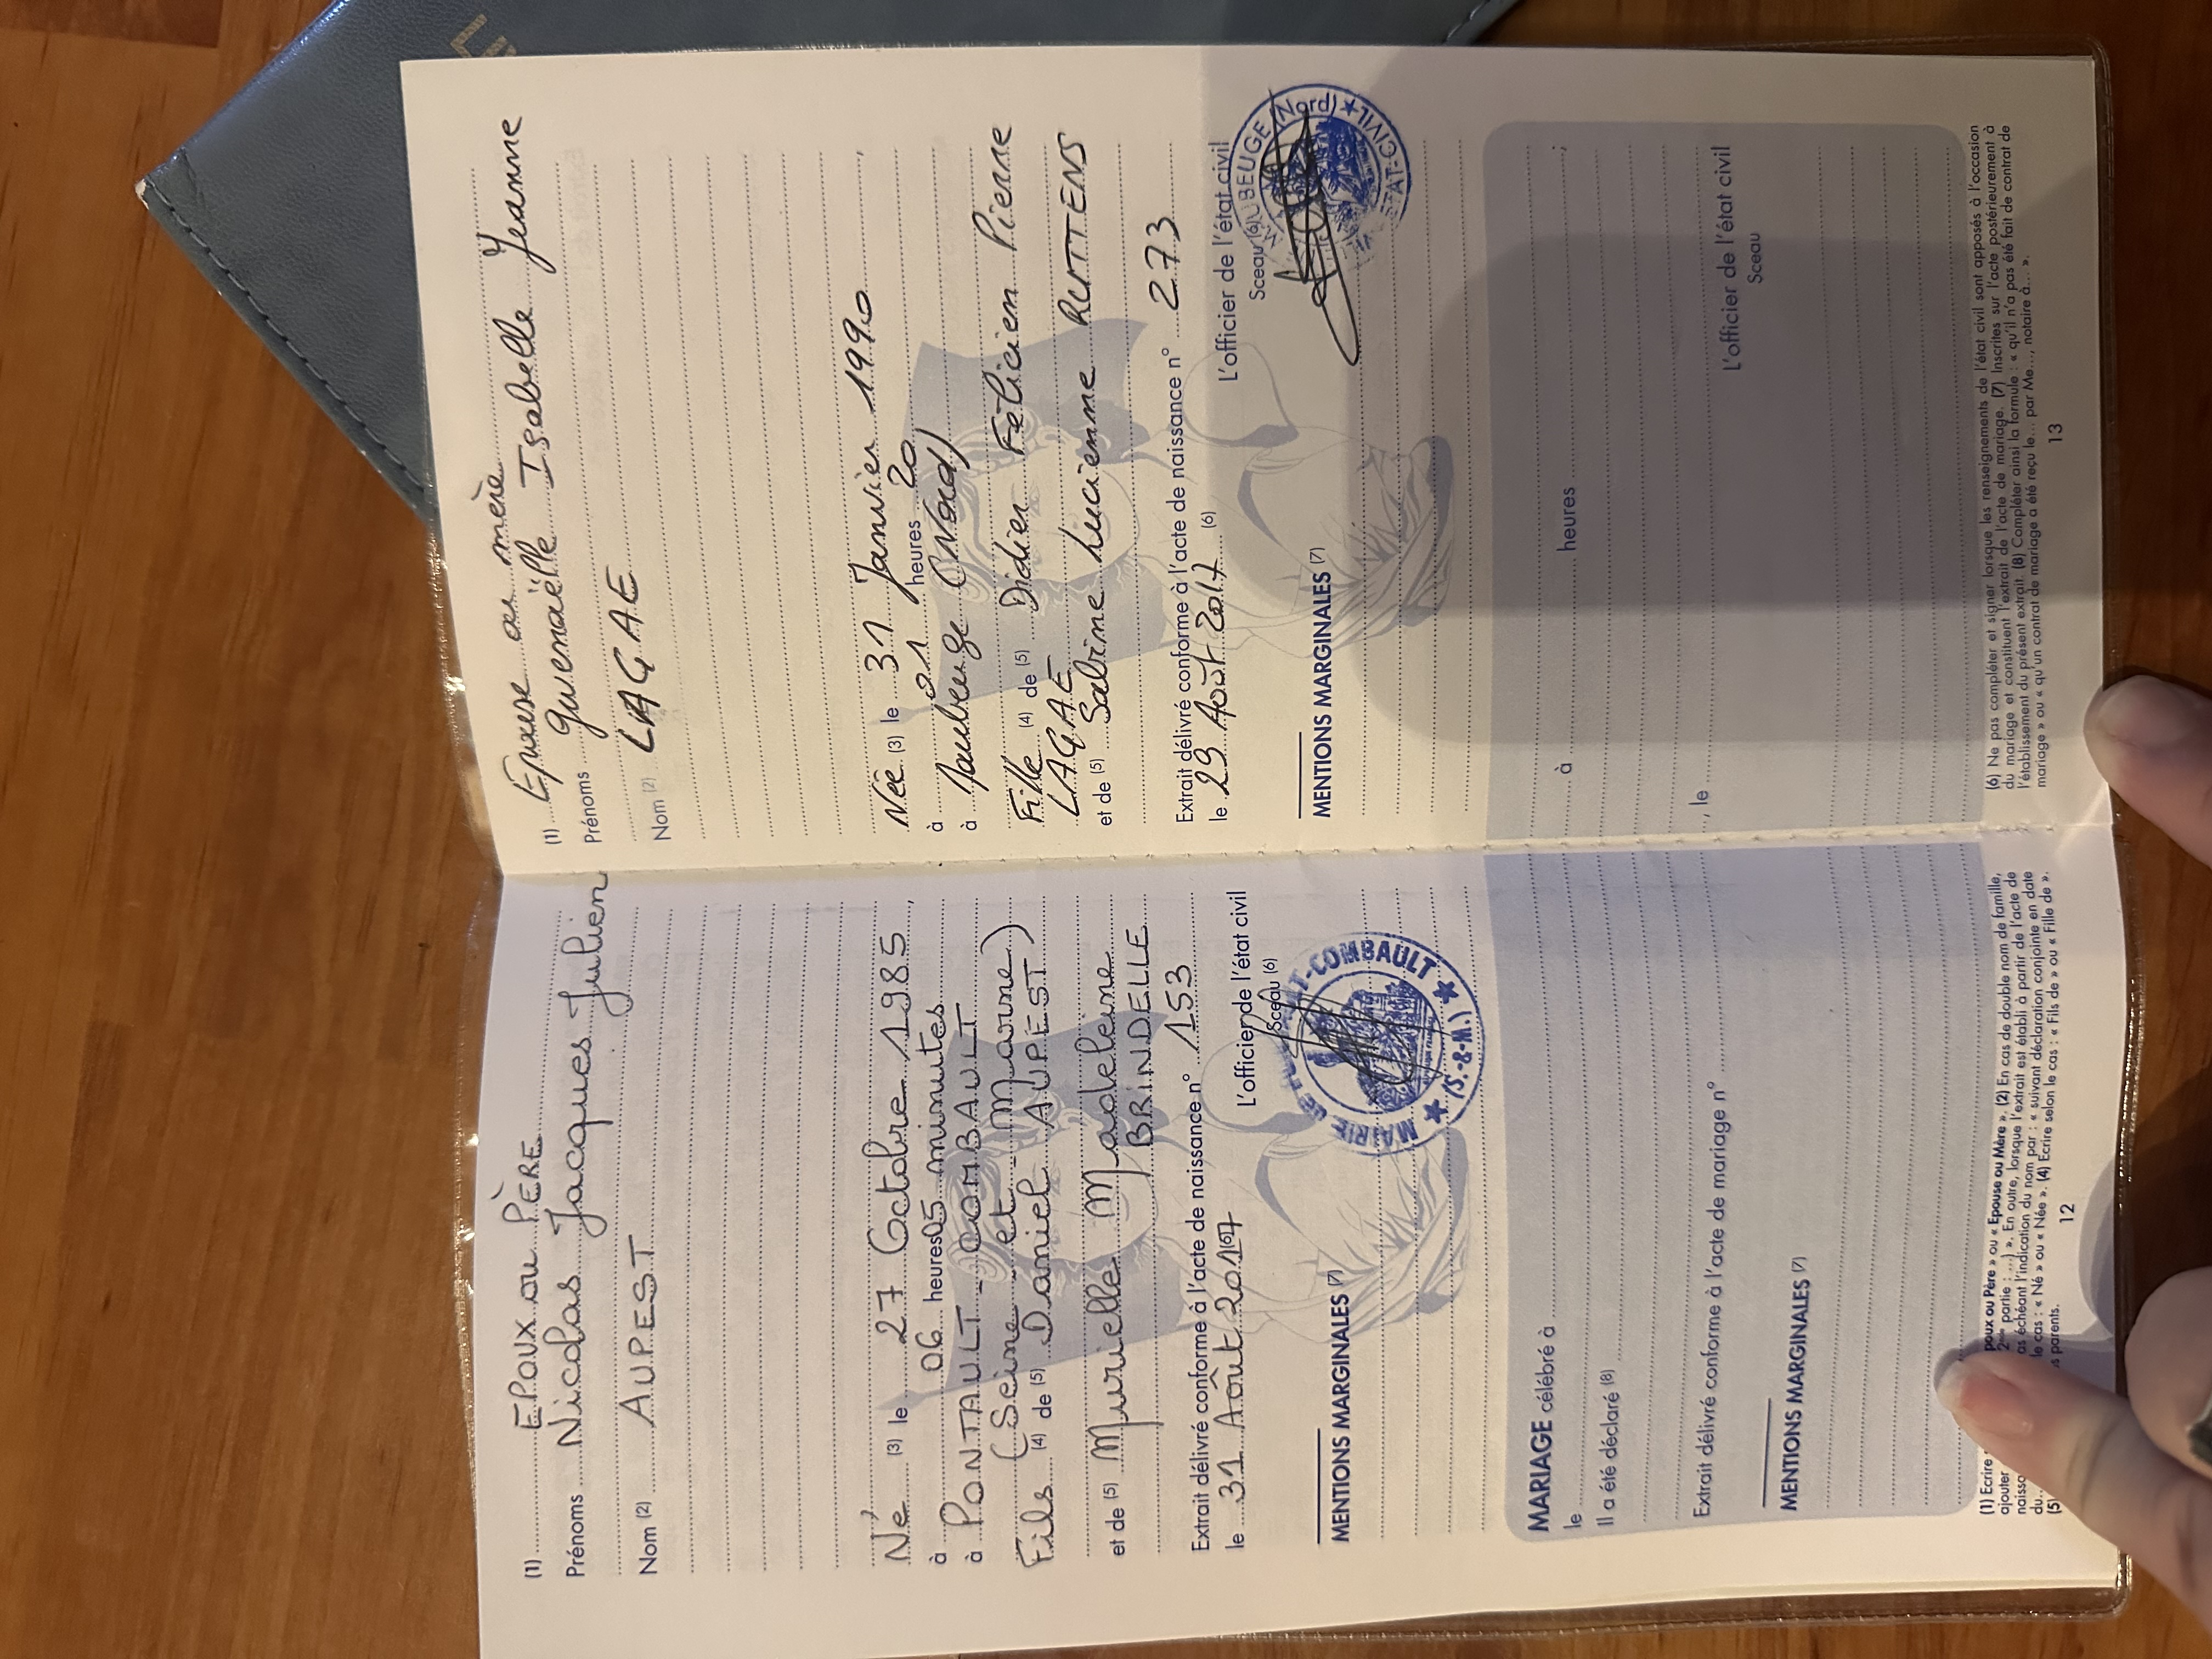 (1) EPOUX ou PÈRE
Prénoms Nicolas Jacques Julien
Nom (2) AUPEST
Né (3) le 27 Octobre 1985,
à 06 heures 05 minutes
à PONTAULT-COMBAULT
(Seine et Marne)
Fils (4) de (5) Daniel AUPEST
et de (5) Murielle Madeleine
BRINDELLE
Extrait délivré conforme à l'acte de naissance n° 153
le 31 Août 2017
L'officier de l'état civil
Sceau (6)
MAIRIE DE
T-COMBAULT
(S.-&-M.)
MENTIONS MARGINALES (7)
MARIAGE célébré à
le
Il a été déclaré (8)
Extrait délivré conforme à l'acte de mariage n°
MENTIONS MARGINALES (7)
(1) Ecrire
poux ou Père » ou « Epouse ou Mère ». (2) En cas de double nom de famille,
ajouter
2ème partie : ...) ». En outre, lorsque l'extrait est établi à partir de l'acte de
naissa
as échéant l'indication du nom par : « suivant déclaration conjointe en date
du...
le cas : « Né » ou « Née ». (4) Ecrire selon le cas : « Fils de » ou « Fille de ».
(5)
s parents.
12
(1) Epouse ou mère
Prénoms Gwenaëlle Isabelle Jeanne
Nom (2) LAGAE
Née (3) le 31 Janvier 1990,
à 21 heures 20
à Maubeuge (Nord)
Fille (4) de (5) Didier Félicien Pierre
LAGAE
et de (5) Sabrine Lucienne RUTTENS
Extrait délivré conforme à l'acte de naissance n° 273
le 29 Août 2017 (6)
L'officier de l'état civil
Sceau (6)
MAUBEUGE (Nord)
ETAT-CIVIL
MENTIONS MARGINALES (7)
à heures ;
, le
L'officier de l'état civil
Sceau
(6) Ne pas compléter et signer lorsque les renseignements de l'état civil sont apposés à l'occasion
du mariage et constituent l'extrait de l'acte de mariage. (7) Inscrites sur l'acte postérieurement à
l'établissement du présent extrait. (8) Compléter ainsi la formule : « qu'il n'a pas été fait de contrat de
mariage » ou « qu'un contrat de mariage a été reçu le... par Me..., notaire à... ».
13